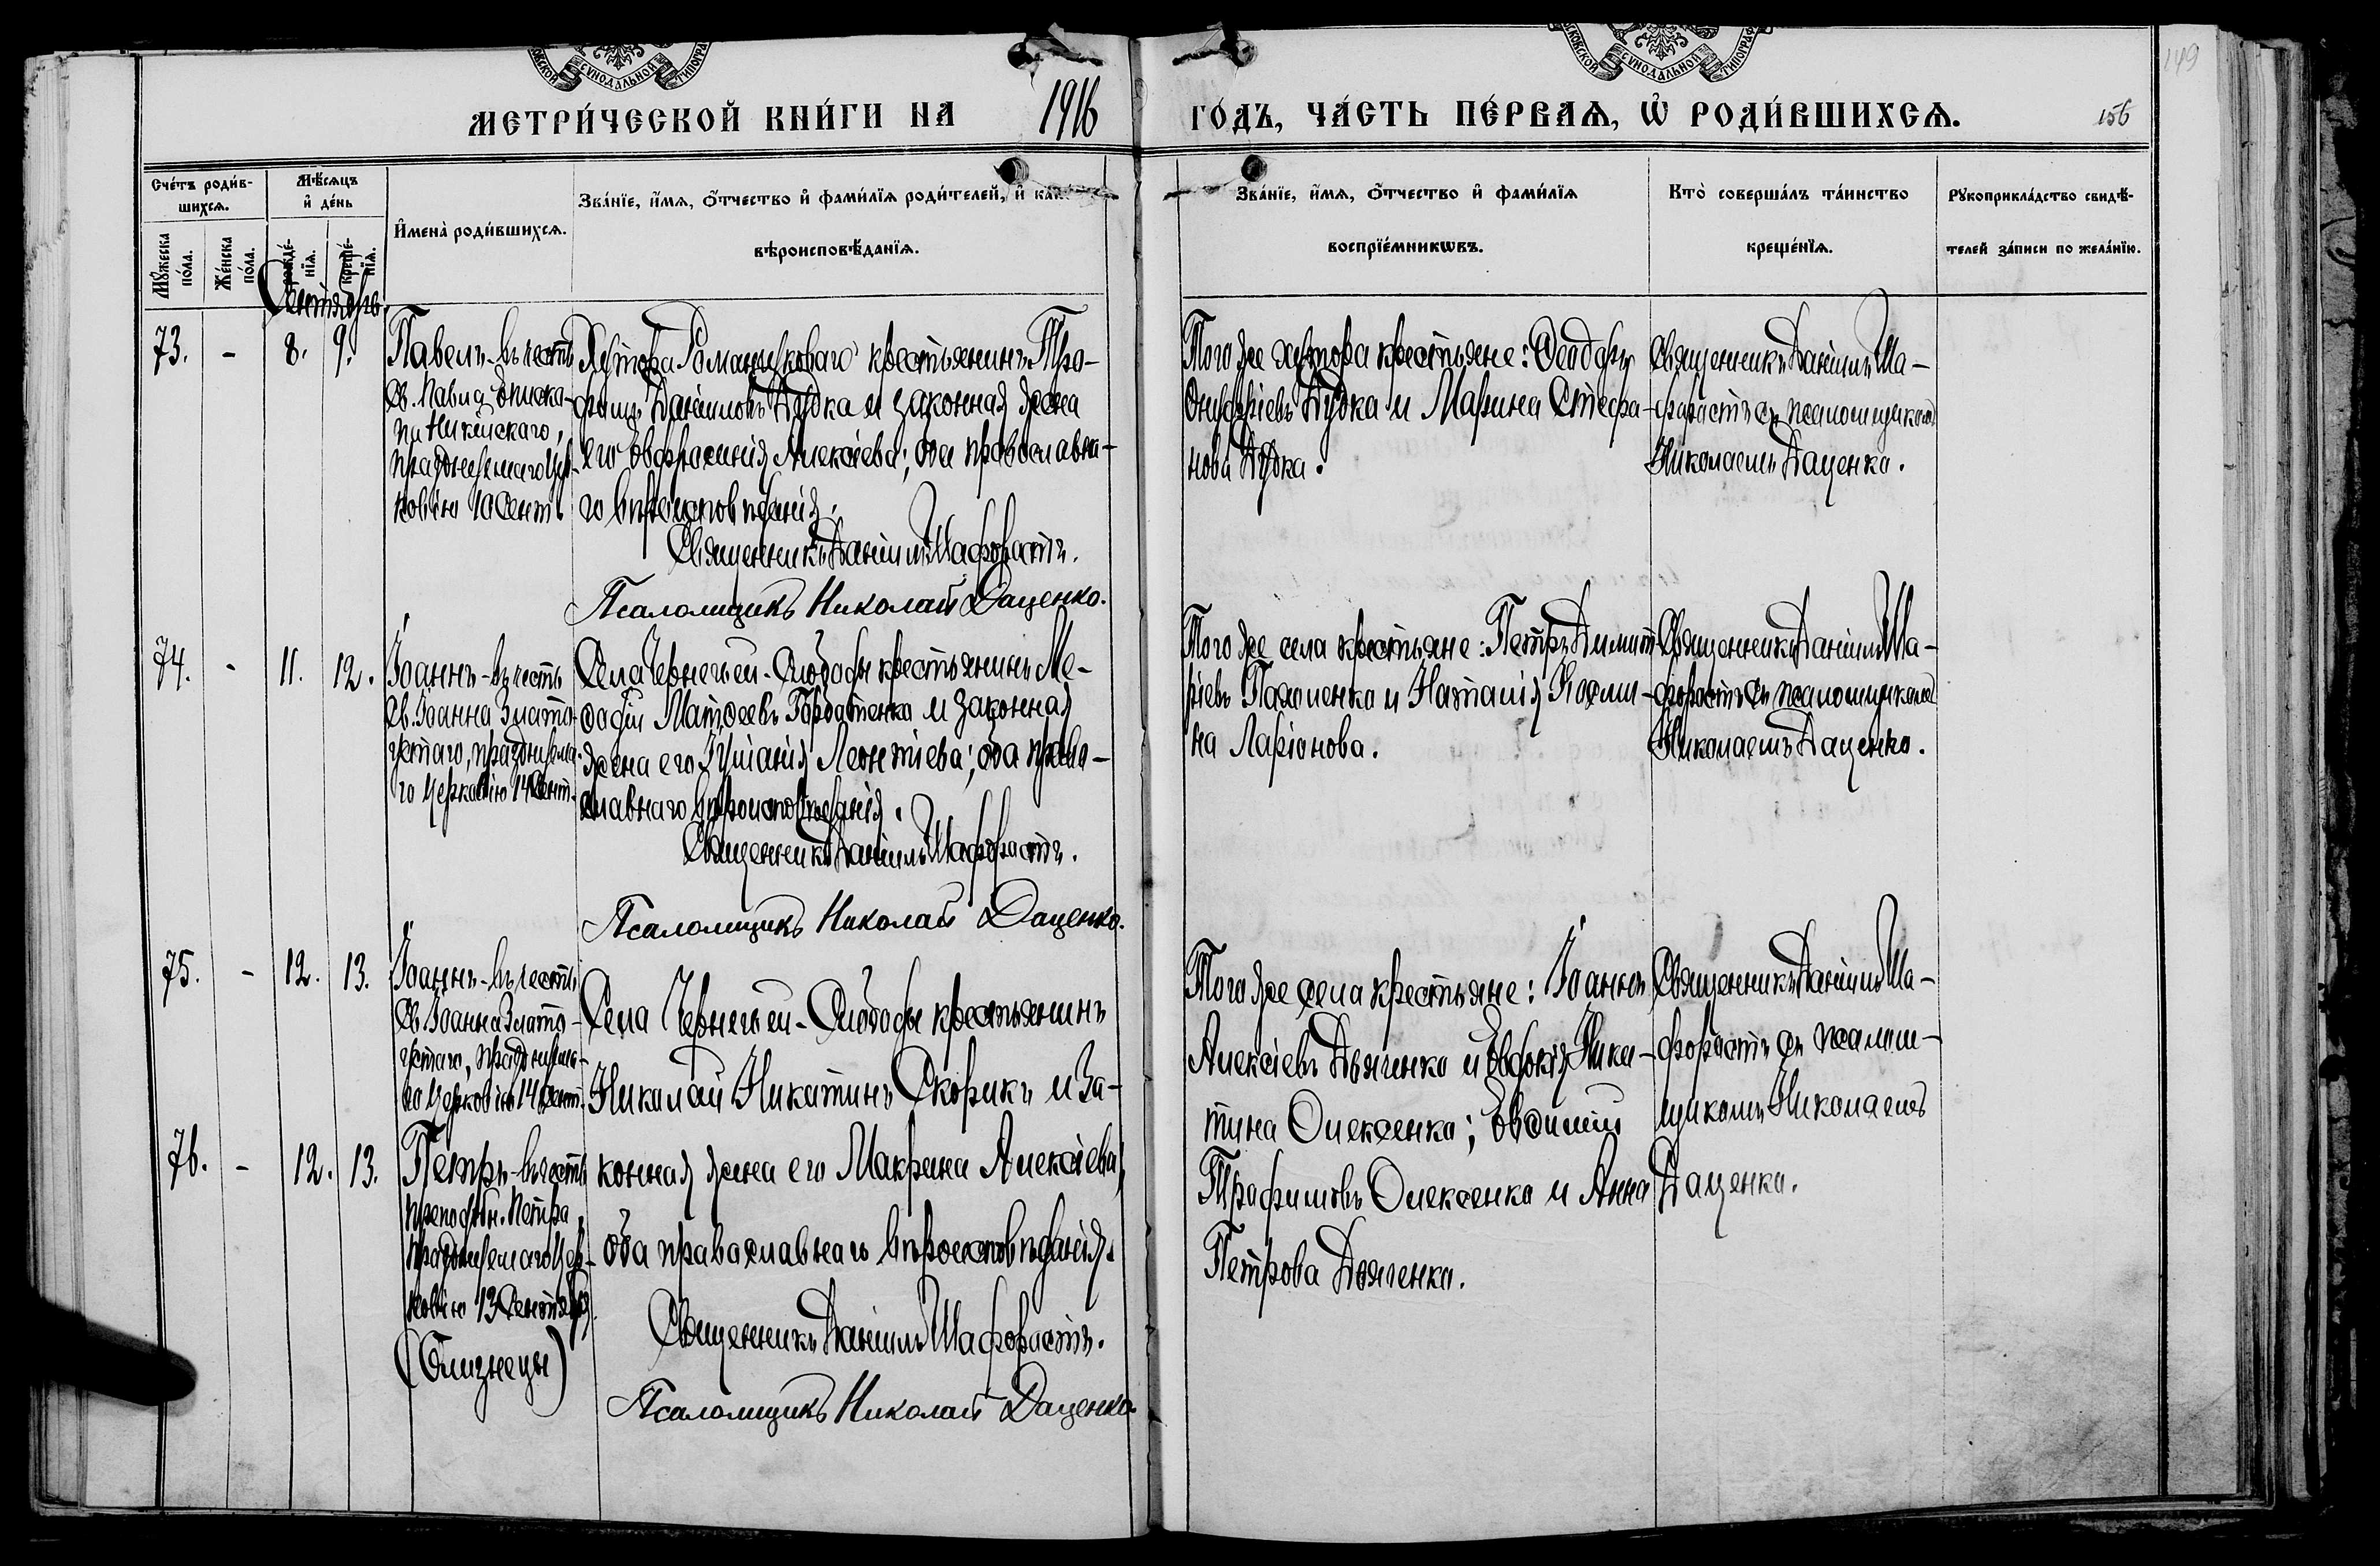 МЕТРИ́ЧЕСКОЙ КНИ́ГИ НА 1916 ГО́ДЪ, ЧА́СТЬ ПЕ́РВАЯ, Ѡ҆ РОДИ́ВШИХСЯ.
149
156
Сче́тъ роди́в-
шихся.
Му́жеска
по́ла.
Же́нска
по́ла.
Мѣ́сяцъ
и҆ де́нь
рожде́-
нїя.
креще́-
нїя.
И҆мена̀ роди́вшихся.
Зва́нїе, и҆́мя, ѻ҆́тчество и҆ фами́лїя роди́телей, и҆ как
вѣроисповѣ́данїя.
Зва́нїе, и҆́мя, ѻ҆́тчество и҆ фами́лїя
воспрїе́мникѡвъ.
Кто̀ соверша́лъ та́инство
креще́нїя.
Рꙋкоприкла́дство свидѣ́-
телей за́писи по жела́нїю.
Сентябрь
73. - 8. 9.
Павелъ - въ честь
Св. Павла Еписко-
па Никейскаго,
празднуемаго Цер-
ковію 10 Сент.
Хутора Романчуковаго крестьянинъ Тро-
фимъ Даніиловъ Дудка и законная жена
его Евфросинія Алексіева; оба православна-
го вѣроисповѣданія.
Священникъ Даніилъ Шафорастъ.
Псаломщикъ Николай Даценко.
Того же хутора крестьяне: Ѳеодоръ
Онуфріевъ Дудка и Марина Стефа-
нова Дудка.
Священникъ Даніилъ Ша-
форастъ съ псаломщикомъ
Николаемъ Даценко.
74. - 11. 12.
Іоаннъ - въ честь
Св. Іоанна Злато-
устаго, празднуема-
го Церковію 14 Сент.
Села Чернечьей-Слободы крестьянинъ Ме-
ѳодій Матѳеевъ Горбатенко и законная
жена его Іуліанія Леонтіева; оба право-
славнаго вѣроисповѣданія.
Священникъ Даніилъ Шафорастъ.
Псаломщикъ Николай Даценко.
Того же села крестьяне: Петръ Димит-
ріевъ Пахоменко и Наталія Косми-
на Ларіонова.
Священникъ Даніилъ Ша-
форастъ съ псаломщикомъ
Николаемъ Даценко.
75. - 12. 13.
Іоаннъ - въ честь
Св. Іоанна Злато-
устаго, празднуема-
го Церковію 14 Сент.
Села Чернечьей-Слободы крестьянинъ
Николай Никитинъ Скорикъ и за-
76. - 12. 13.
Петръ - въ честь
преподобн. Петра,
празднуемаго Цер-
ковію 13 Сентября.
(Близнецы)
конная жена его Макрина Алексіева;
оба православнаго вѣроисповѣданія.
Священникъ Даніилъ Шафорастъ.
Псаломщикъ Николай Даценко.
Того же села крестьяне: Іоаннъ
Алексіевъ Дяченко и Евдокія Ники-
тина Олексенко; Евѳимій
Трофимовъ Олексенко и Анна
Петрова Дяченко.
Священникъ Даніилъ Ша-
форастъ съ псалом-
щикомъ Николаемъ
Даценко.